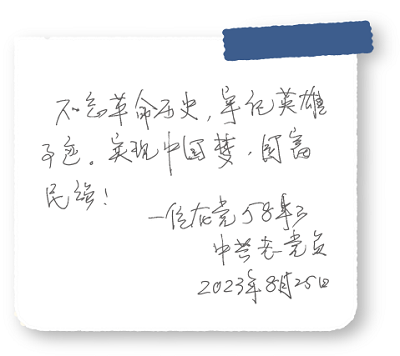 不忘革命历史，牢记英雄
本色。实现中国梦，国富
民强！
一位在党58年
中共老党员
2023年8月25日